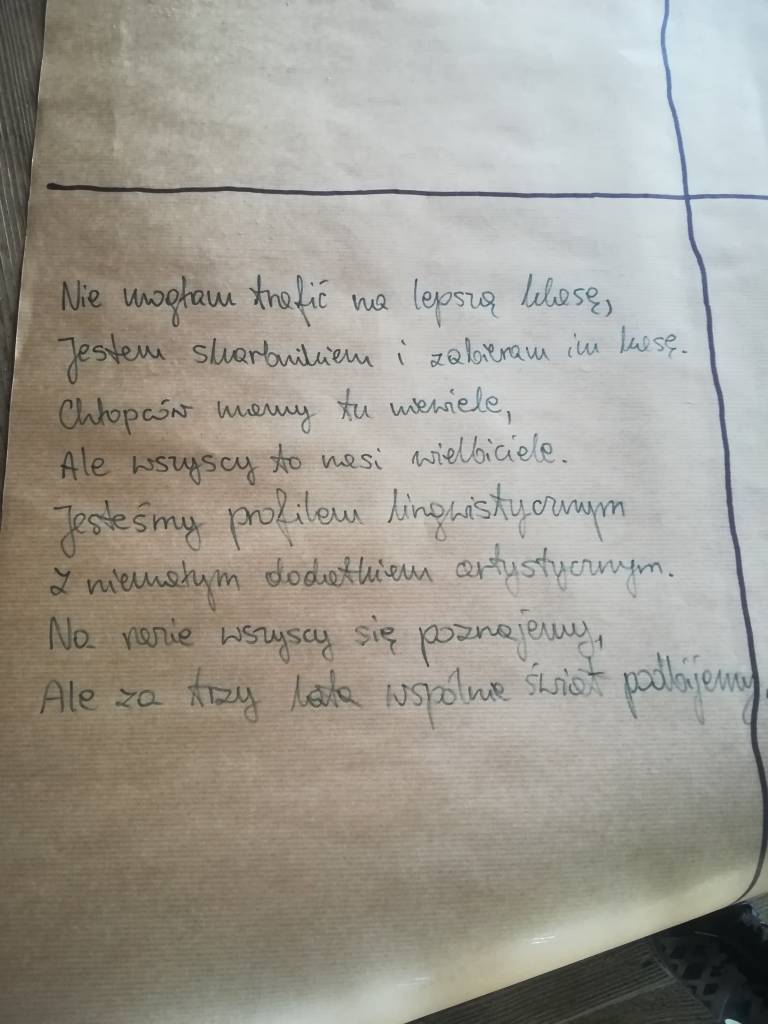 Nie mogłam trafić na lepszą klasę,
Jestem skarbnikiem i zabieram im kasę.
Chłopców mamy tu niewiele,
Ale wszyscy to nasi wielbiciele.
Jesteśmy profilem lingwistycznym
Z niemałym dodatkiem artystycznym.
Na razie wszyscy się poznajemy,
Ale za trzy lata wspólnie świat podbijemy.